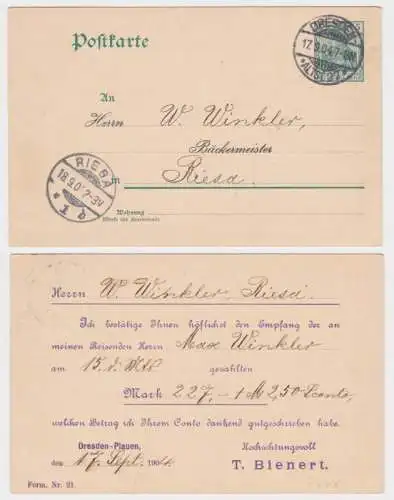 Postkarte
DRESDEN
17.9.04. 7-8N
ALTST.
An
Herrn W. Winkler,
Bäckermeister
in Riesa.
RIESA
18.9.0 2-3V
Wohnung
Herrn W. Winkler, Riesa.
Ich bestätige Ihnen höflichst den Empfang der an
meinen Reisenden Herrn Max Winkler
am 15. d. Mts gezahlten
Mark 227,- 1 M 2,50 Sconto,
welchen Betrag ich Ihrem Conto dankend gutgeschrieben habe.
Dresden-Plauen, Hochachtungsvoll
den 17. Sept. 1904. T. Bienert.
Form. Nr. 21.